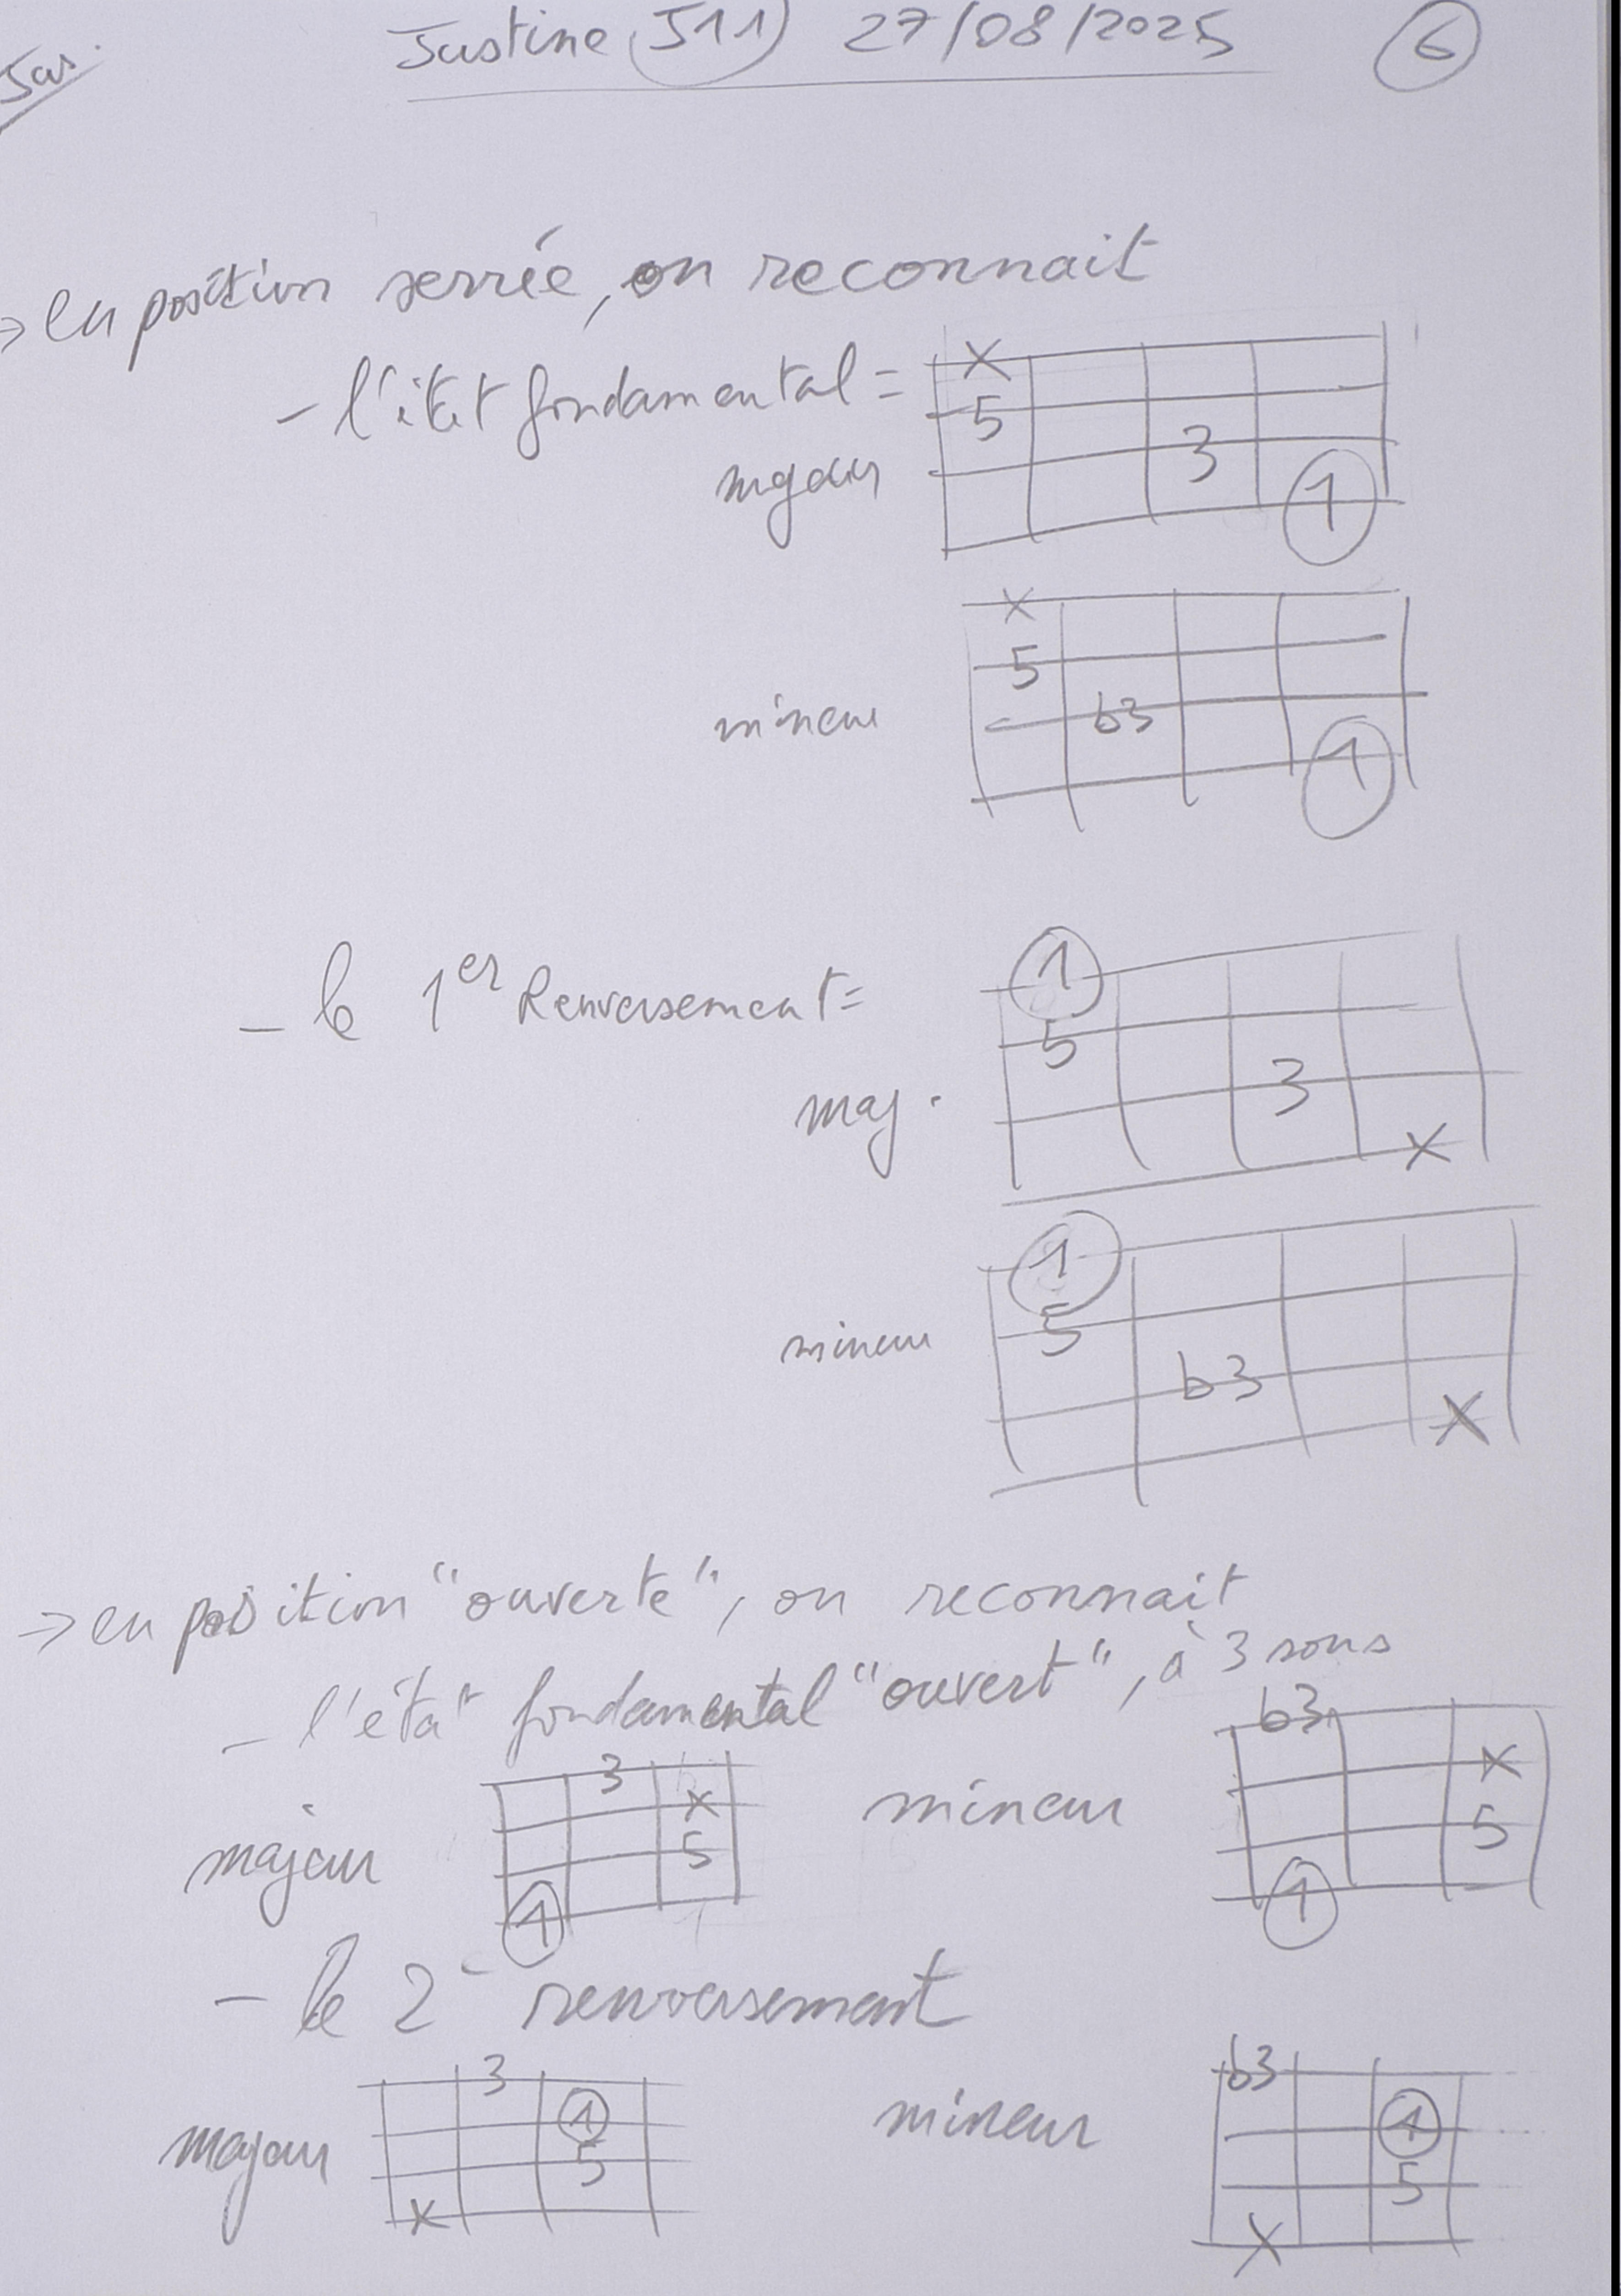 Jus.
Justine (J11) 27/08/2025 6
→ en position serrée, on reconnait
- l'état fondamental =
X
5
3
majeur
1
X
5
mineur b3
1
- le 1er Renversement =
1
5
maj. 3
X
1
5
mineur b3
X
→ en position "ouverte", on reconnait
- l'état fondamental "ouvert", à 3 sons
3 b3
X X
majeur 5 mineur 5
1 1
- le 2e renversement
3 b3
1 1
majeur 5 mineur 5
X X